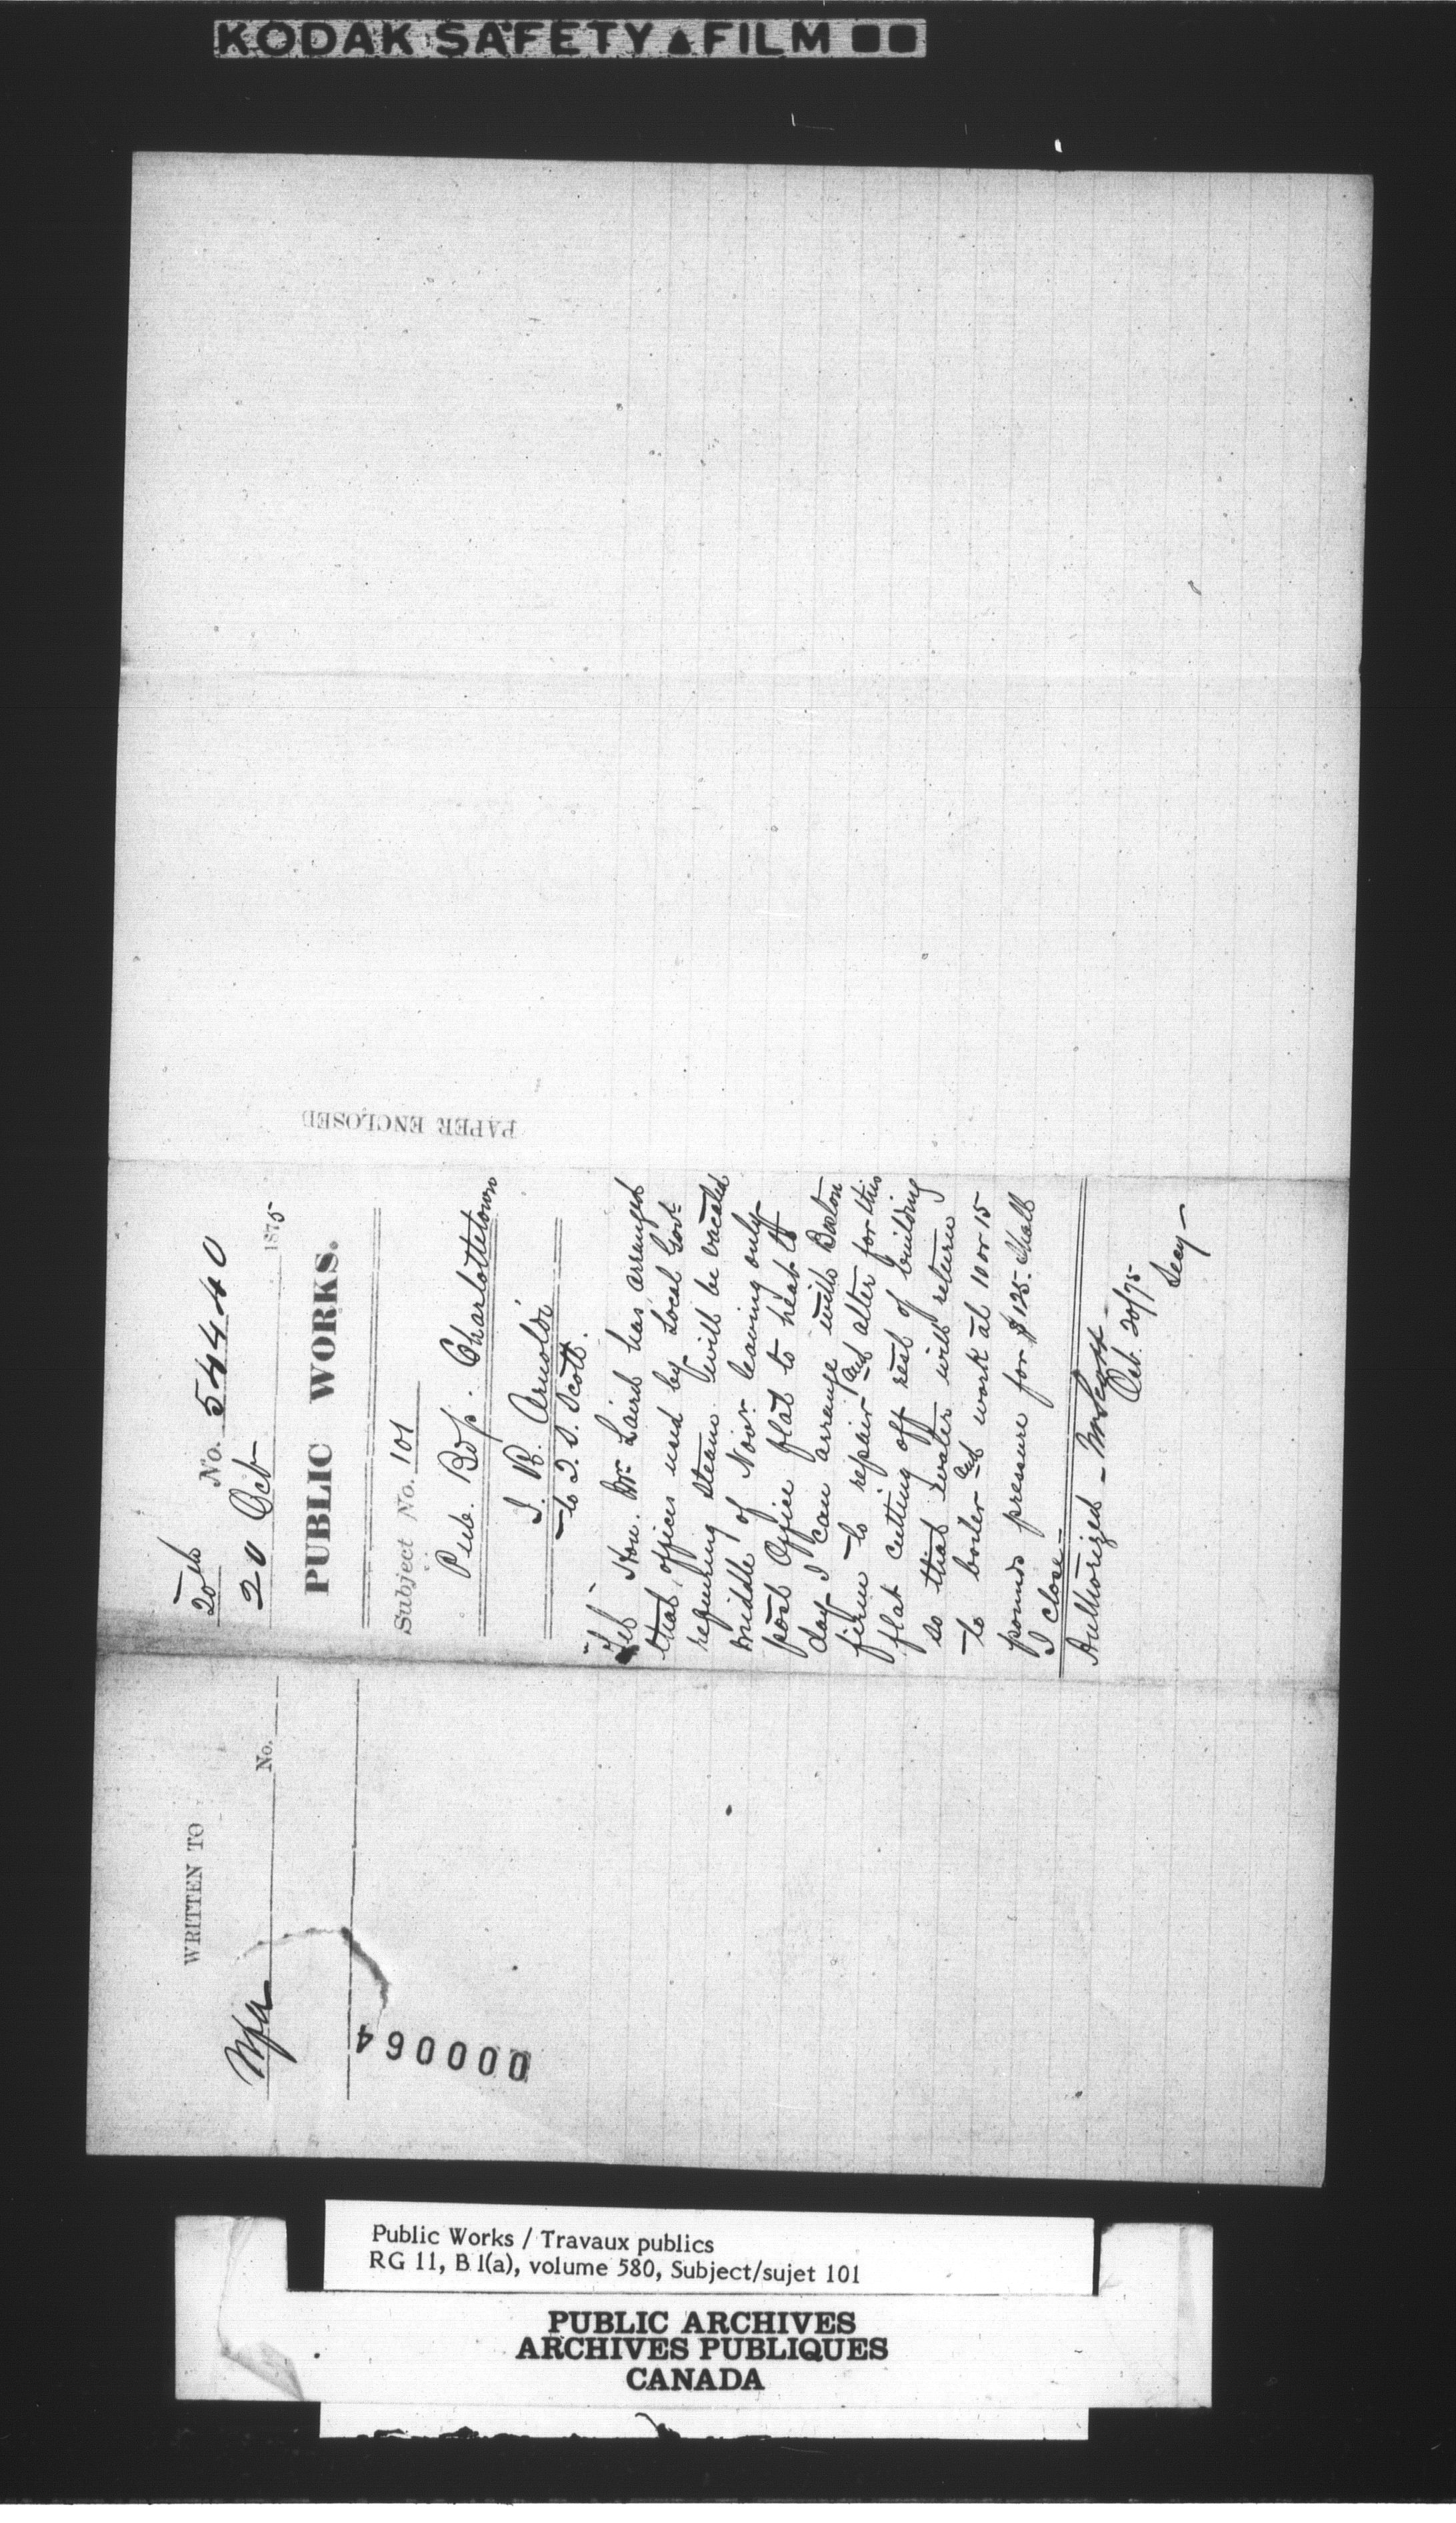 KODAK SAFETY FILM
20th
No. 54440
20 Oct 1875
PUBLIC WORKS.
Subject No. 101
Pub. Bdgs. Charlottetown
J. B. Arnoldi
to T. S. Scott.
Tel - Hon. Mr. Laird has arranged
that offices used by Local Govt.
requiring steam will be vacated
middle of Novr. leaving only
post Office flat to heat to
day I can arrange with Boston
firm to repair and alter for this
flat cutting off rest of building
so that water will return
to boiler and work at 10 or 15
pounds pressure for $125. Shall
I close -
Authorized -
Oct. 20/75
Secy -
PAPER ENCLOSED
WRITTEN TO
No.
000064
Public Works / Travaux publics
RG 11, B 1(a), volume 580, Subject/sujet 101
PUBLIC ARCHIVES
ARCHIVES PUBLIQUES
CANADA